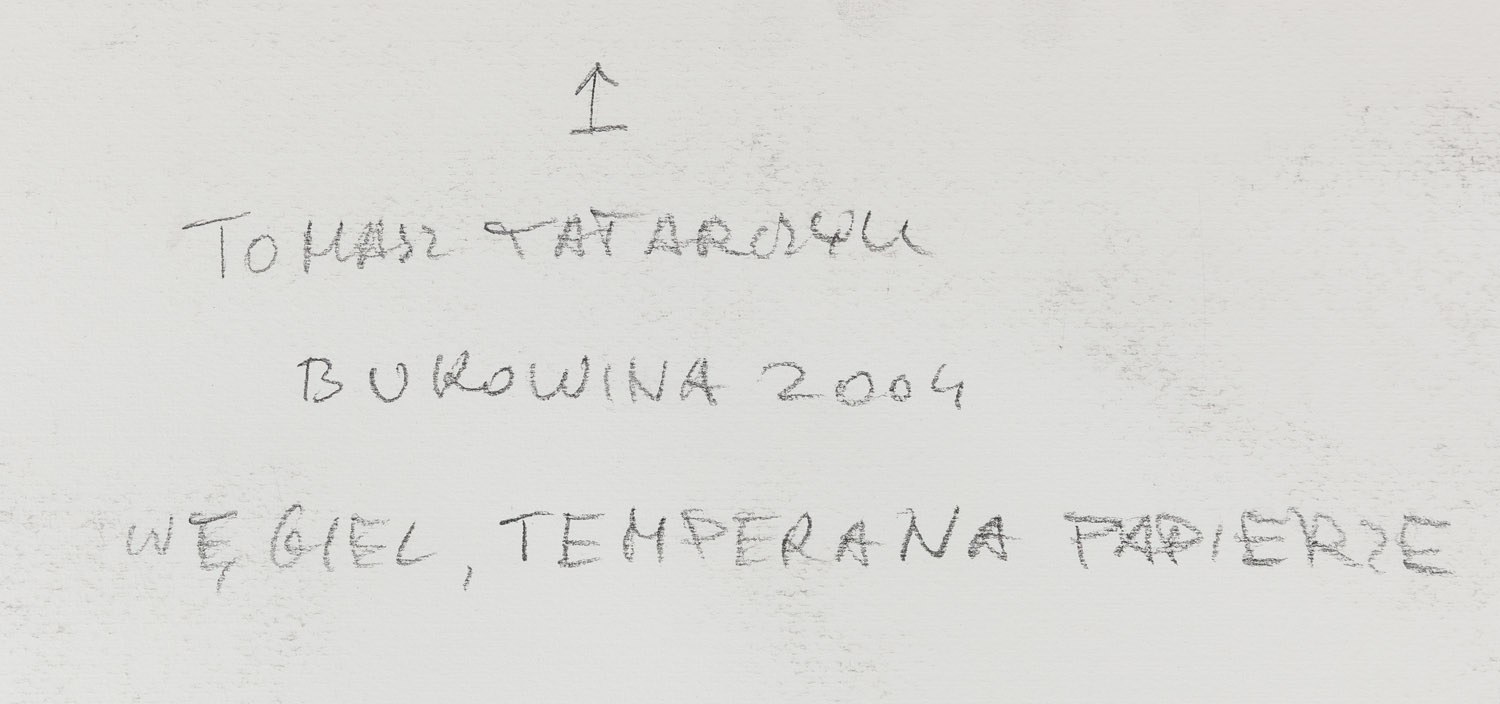 ↑
TOMASZ TATARCZYK
BUKOWINA 2004
WĘGIEL, TEMPERA NA PAPIERZE